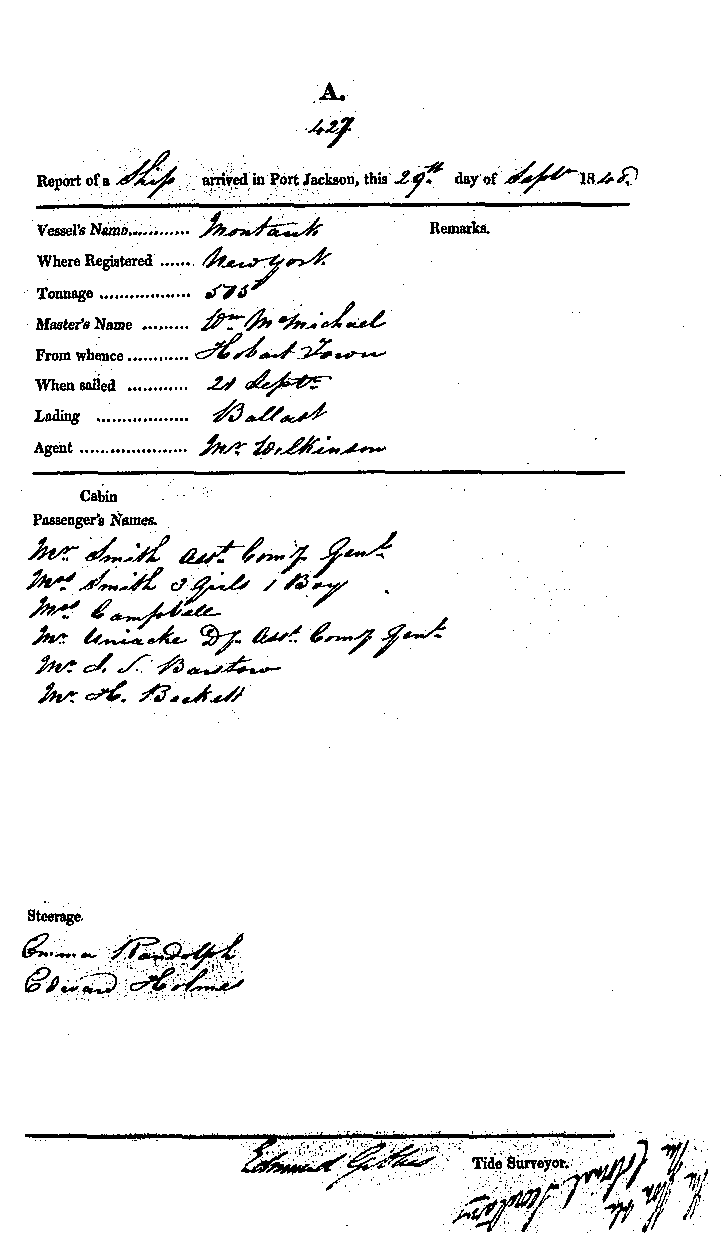 A.
427
Report of a Ship arrived in Port Jackson, this 29th day of Septr 1848.
Vessel's Name........... Montauk
Remarks.
Where Registered ...... New York
Tonnage .................. 505
Master's Name ......... Wm McMichael
From whence ............ Hobart Town
When sailed ............ 21 Septr
Lading .................. Ballast
Agent ..................... Mr. Wilkinson
Cabin
Passenger's Names.
Mr. Smith Asst. Comy Genl.
Mrs Smith 3 Girls 1 Boy
Mrs Campbell
Mr. Uniacke Dy. Asst. Comy Genl.
Mr. J. S. Barstow
Mr. H. Beckett
Steerage.
Emma Randolph
Edward Holmes
Edmund Gibbes Tide Surveyor.
The Hon the
Colonial Secretary